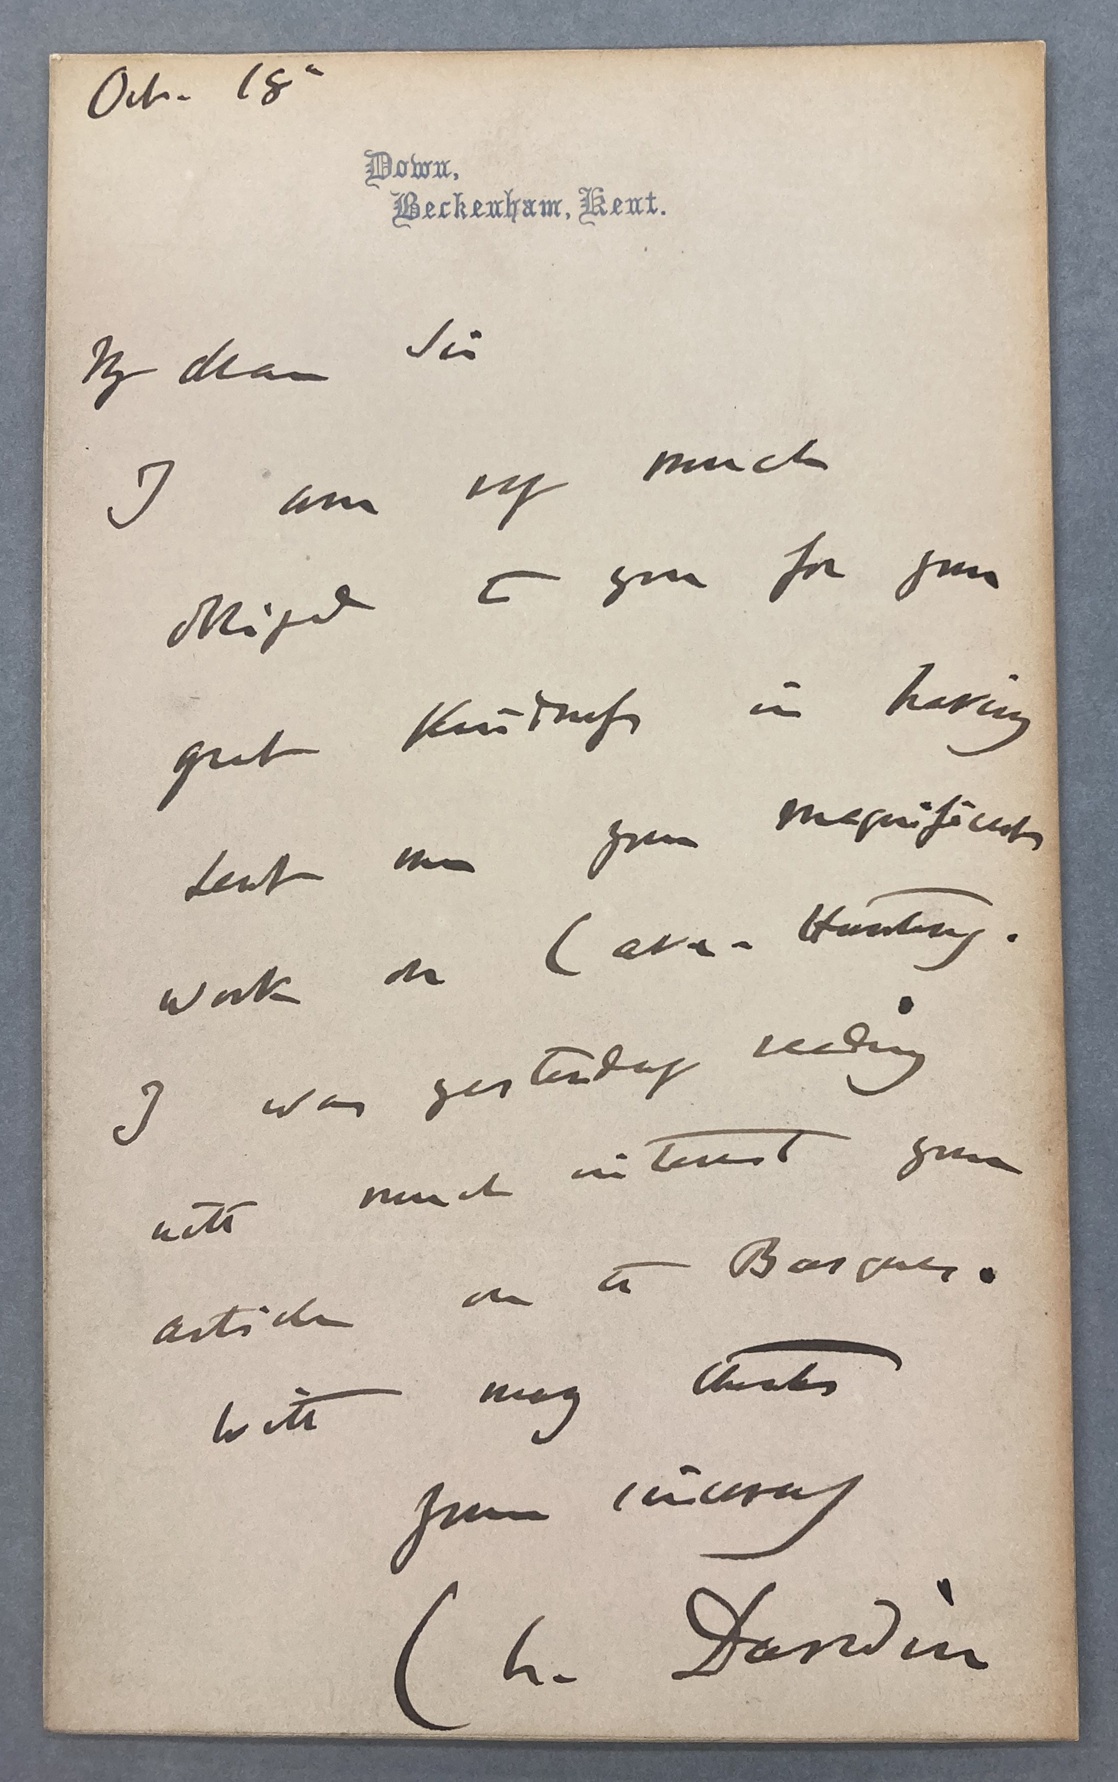 Oct. 18th
Down,
Beckenham, Kent.
My dear Sir
I am very much
obliged to you for your
great kindness in having
sent me your magnificent
work on Cave-Hunting.
I was yesterday reading
with much interest your
article on the Basques.
With many thanks
yours sincerely
Ch. Darwin